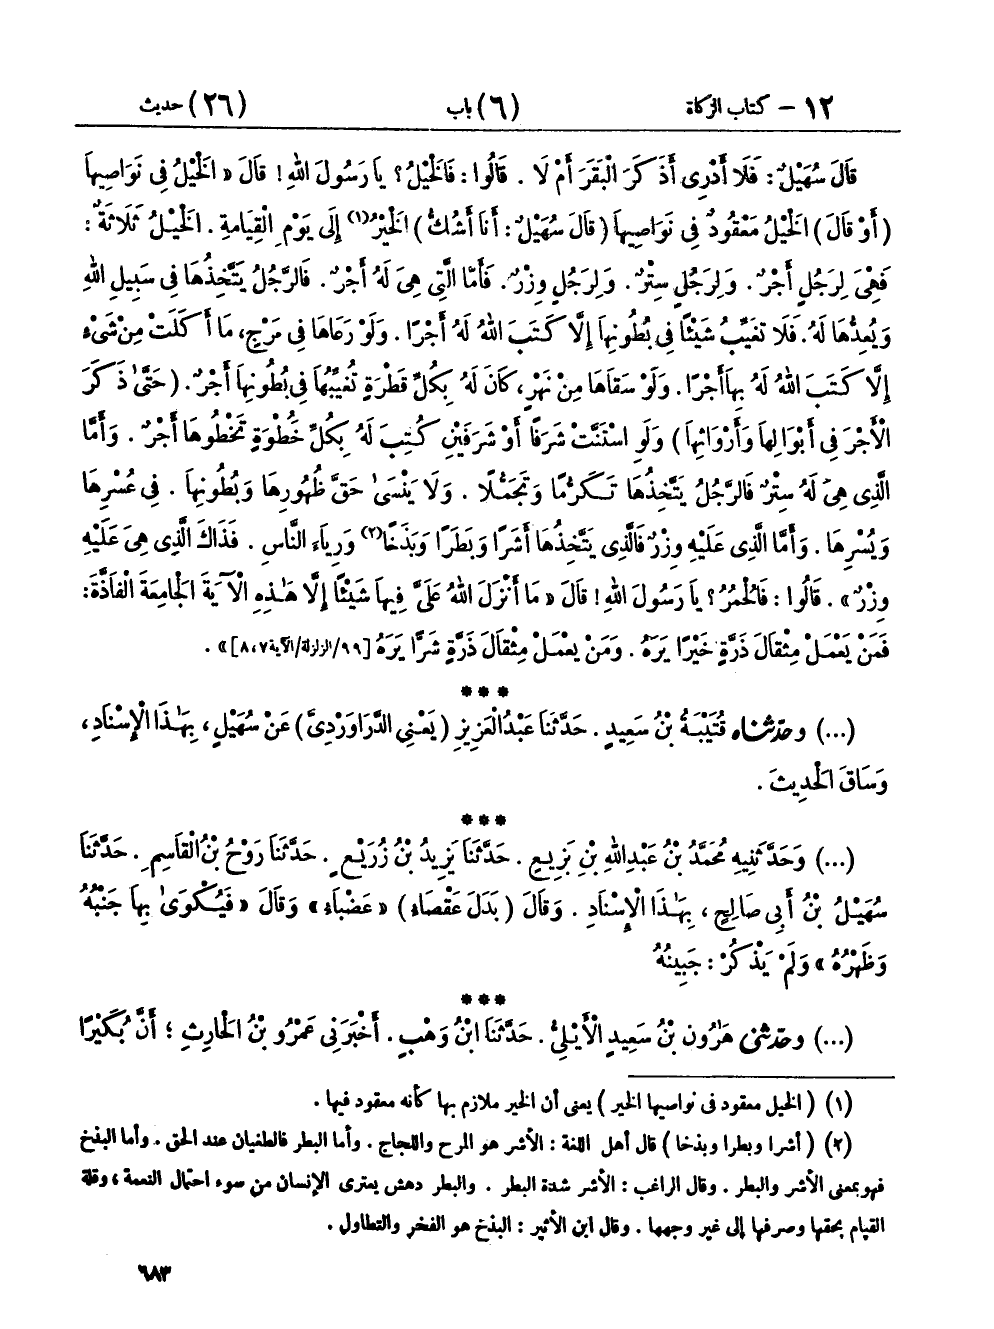 ١٢ – كتاب الزكاة (٦) باب (٢٦) حديث
قَالَ سُهَيْلٌ: فَلَا أَدْرِى أَذَكَرَ الْبَقَرَ أَمْ لَا . قَالُوا : فَالْخَيْلُ ؟ يَا رَسُولَ اللهِ ! قَالَ « الْخَيْلُ فِى نَوَاصِيهَا
( أَوْ قَالَ ) الْخَيْلُ مَعْقُودٌ فِى نَوَاصِيهَا ( قَالَ سُهَيْلٌ : أَنَا أَشُكُّ ) الْخَيْرُ(١) إِلَى يَوْمِ الْقِيَامَةِ . الْخَيْلُ ثَلَاثَةٌ :
فَهْىَ لِرَجُلٍ أَجْرٌ . وَلِرَجُلٍ سِتْرٌ . وَلِرَجُلٍ وِزْرٌ . فَأَمَّا الَّتِى هِىَ لَهُ أَجْرٌ . فَالرَّجُلُ يَتَّخِذُهَا فِى سَبِيلِ اللهِ
وَيُعِدُّهَا لَهُ. فَلَا تُغَيِّبُ شَيْئًا فِى بُطُونِهَا إِلَّا كَتَبَ اللهُ لَهُ أَجْرًا . وَلَوْ رَعَاهَا فِى مَرْجٍ، مَا أَكَلَتْ مِنْ شَىْءٍ
إِلَّا كَتَبَ اللهُ لَهُ بِهَا أَجْرًا . وَلَوْ سَقَاهَا مِنْ نَهْرٍ، كَانَ لَهُ بِكُلِّ قَطْرَةٍ تُغَيِّبُهَا فِى بُطُونِهَا أَجْرٌ . ( حَتَّىٰ ذَكَرَ
الْأَجْرَ فِى أَبْوَالِهَا وَأَرْوَاثِهَا ) وَلَوِ اسْتَنَّتْ شَرَفًا أَوْ شَرَفَيْنِ كُتِبَ لَهُ بِكُلِّ خُطْوَةٍ تَخْطُوهَا أَجْرٌ . وَأَمَّا
الَّذِى هِىَ لَهُ سِتْرٌ فَالرَّجُلُ يَتَّخِذُهَا تَكَرُّمًا وَتَجَمُّلًا . وَلَا يَنْسَىٰ حَقَّ ظُهُورِهَا وَبُطُونِهَا . فِى عُسْرِهَا
وَيُسْرِهَا . وَأَمَّا الَّذِى عَلَيْهِ وِزْرٌ فَالَّذِى يَتَّخِذُهَا أَشَرًا وَبَطَرًا وَبَذَخًا(٢) وَرِيَاءَ النَّاسِ . فَذَاكَ الَّذِى هِىَ عَلَيْهِ
وِزْرٌ » . قَالُوا : فَالْحُمُرُ ؟ يَا رَسُولَ اللهِ ! قَالَ « مَا أَنْزَلَ اللهُ عَلَىَّ فِيهَا شَيْئًا إِلَّا هَٰذِهِ الْآيَةَ الْجَامِعَةَ الْفَاذَّةَ:
فَمَنْ يَعْمَلْ مِثْقَالَ ذَرَّةٍ خَيْرًا يَرَهُ . وَمَنْ يَعْمَلْ مِثْقَالَ ذَرَّةٍ شَرًّا يَرَهُ [٩٩/الزلزلة/الآية ٨،٧] » .
***
(...) وحدّثناه قُتَيْبَةُ بْنُ سَعِيدٍ . حَدَّثَنَا عَبْدُ الْعَزِيزِ ( يَعْنِي الدَّرَاوَرْدِىَّ ) عَنْ سُهَيْلٍ ، بِهَٰذَا الْإِسْنَادِ،
وَسَاقَ الْحَدِيثَ .
***
(...) وَحَدَّثَنِيهِ مُحَمَّدُ بْنُ عَبْدِ اللهِ بْنِ بَزِيعٍ . حَدَّثَنَا يَزِيدُ بْنُ زُرَيْعٍ . حَدَّثَنَا رَوْحُ بْنُ الْقَاسِمِ . حَدَّثَنَا
سُهَيْلُ بْنُ أَبِى صَالِحٍ ، بِهَٰذَا الْإِسْنَادِ . وَقَالَ ( بَدَلَ عَقْصَاءَ ) « عَضْبَاءَ » وَقَالَ « فَيُكْوَىٰ بِهَا جَنْبُهُ
وَظَهْرُهُ » وَلَمْ يَذْكُرْ : جَبِينُهُ
***
(...) وحدّثنى هَرُونُ بْنُ سَعِيدٍ الْأَيْلِىُّ . حَدَّثَنَا ابْنُ وَهْبٍ . أَخْبَرَنِى عَمْرُو بْنُ الْحَارِثِ ؛ أَنَّ بُكَيْرًا
(١) ( الخيل معقود فى نواصيها الخير ) يعنى أن الخير ملازم بها كأنه معقود فيها .
(٢) ( أشرا وبطرا وبذخا ) قال أهل اللغة : الأشر هو المرح واللجاج . وأما البطر فالطغيان عند الحق . وأما البذخ
فهو بمعنى الأشر والبطر . وقال الراغب : الأشر شدة البطر . والبطر دهش يعترى الإنسان من سوء احتمال النعمة ، وقلة
القيام بحقها وصرفها إلى غير وجهها . وقال ابن الأثير : البذخ هو الفخر والتطاول .
٦٨٣